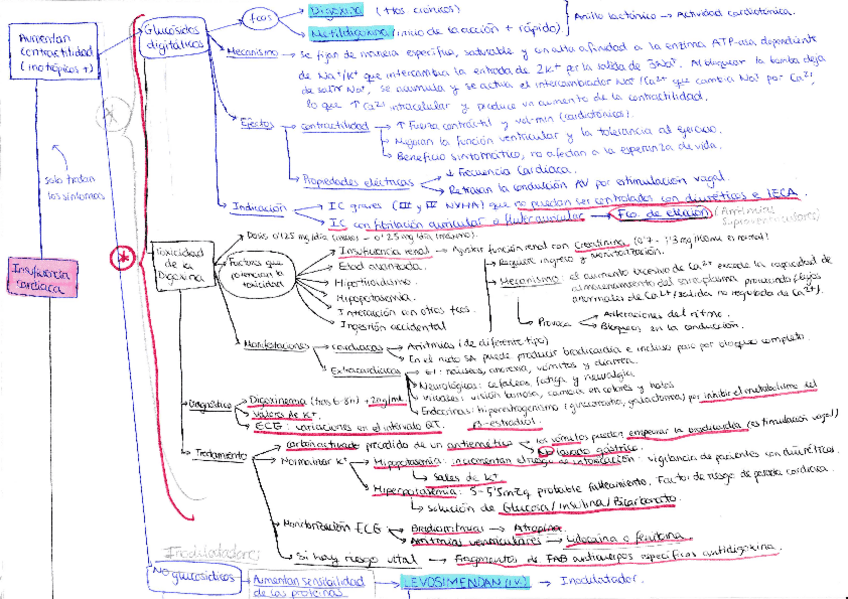 Aumentan
contractilidad
(inotrópicos +)
solo tratan
los síntomas
Insuficiencia
cardiaca
Glucósidos
digitálicos
fcos
Digoxina (ttos crónicos)
Metildigoxina (inicio de la acción + rápido)
Anillo lactónico → Actividad cardiotónica.
Mecanismo → Se fijan de manera específica, saturable y con alta afinidad a la enzima ATP-asa dependiente
de Na+/K+ que intercambia la entrada de 2K+ por la salida de 3Na+. Al bloquear la bomba deja
de salir Na+, se acumula y se activa el intercambiador Na+/Ca2+ que cambia Na+ por Ca2+,
lo que ↑ Ca2+ intracelular y produce un aumento de la contractilidad.
Efectos → contractilidad → ↑ Fuerza contráctil y vol-min (cardiotónicos).
Mejoran la función ventricular y la tolerancia al ejercicio.
Beneficio sintomático, no afectan a la esperanza de vida.
Propiedades eléctricas → ↓ Frecuencia cardiaca.
Retrasan la conducción AV por estimulación vagal.
Indicación → IC graves (III y IV NYHA) que no puedan ser controlados con diuréticos e IECA.
IC con fibrilación auricular o flutter auricular → Fco. de elección (Arritmias
supraventriculares)
Toxicidad
de la
Digoxina
Dosis: 0'125 mg/día (menos) - 0'25 mg/día (máximo).
Factores que
potencian la
toxicidad
Insuficiencia renal → Ajustar función renal con creatinina (0'7 - 1'3 mg/100mL es normal)
Edad avanzada.
Hipertiroidismo.
Hipopotasemia.
Interacción con otros fcos.
Ingesión accidental
Requiere ingreso y monitorización.
Mecanismo: el aumento excesivo de Ca2+ excede la capacidad de
almacenamiento del sarcoplasma provocando flujos
anormales de Ca2+ (salida no regulada de Ca2+).
Provoca → Alteraciones del ritmo.
Bloqueos en la conducción.
Manifestaciones → cardiacas → Arritmias (de diferente tipo)
En el nodo SA puede producir bradicardia e incluso paro por bloqueo completo.
Extracardiacas → GI: náuseas, anorexia, vómitos y diarrea.
Neurológicas: cefaleas, fatiga y neuralgia
Visuales: visión borrosa, cambia en colores y halos
Endocrinas: hiperestrogenismo (ginecomastia, galactorrea) por inhibir el metabolismo del
β-estradiol
Diagnóstico → Digoxinemia (tras 6-8h) + 2ng/mL
Valores de K+.
ECG: variaciones en el intervalo QT.
Tratamiento → carbón activado precedido de un antiemético → los vómitos pueden empeorar la bradicardia (estimulación vagal)
lavado gástrico.
Normalizar K+ → Hipopotasemia: incrementan el riesgo de intoxicación: vigilancia de pacientes con diuréticos.
Sales de K+
Hiperpotasemia: 5-5'5mEq probable fallecimiento. Factor de riesgo de parada cardiaca.
solución de Glucosa/Insulina/Bicarbonato.
Monitorización ECG → Bradiarritmias → Atropina.
Arritmias ventriculares → Lidocaína o fenitoína.
Si hay riesgo vital → Fragmentos de FAB anticuerpos específicos antidigoxina.
Inodilatadores
No glucosídicos
Aumentan sensibilidad
de las proteínas
LEVOSIMENDAN (i.v.) → Inodilatador.